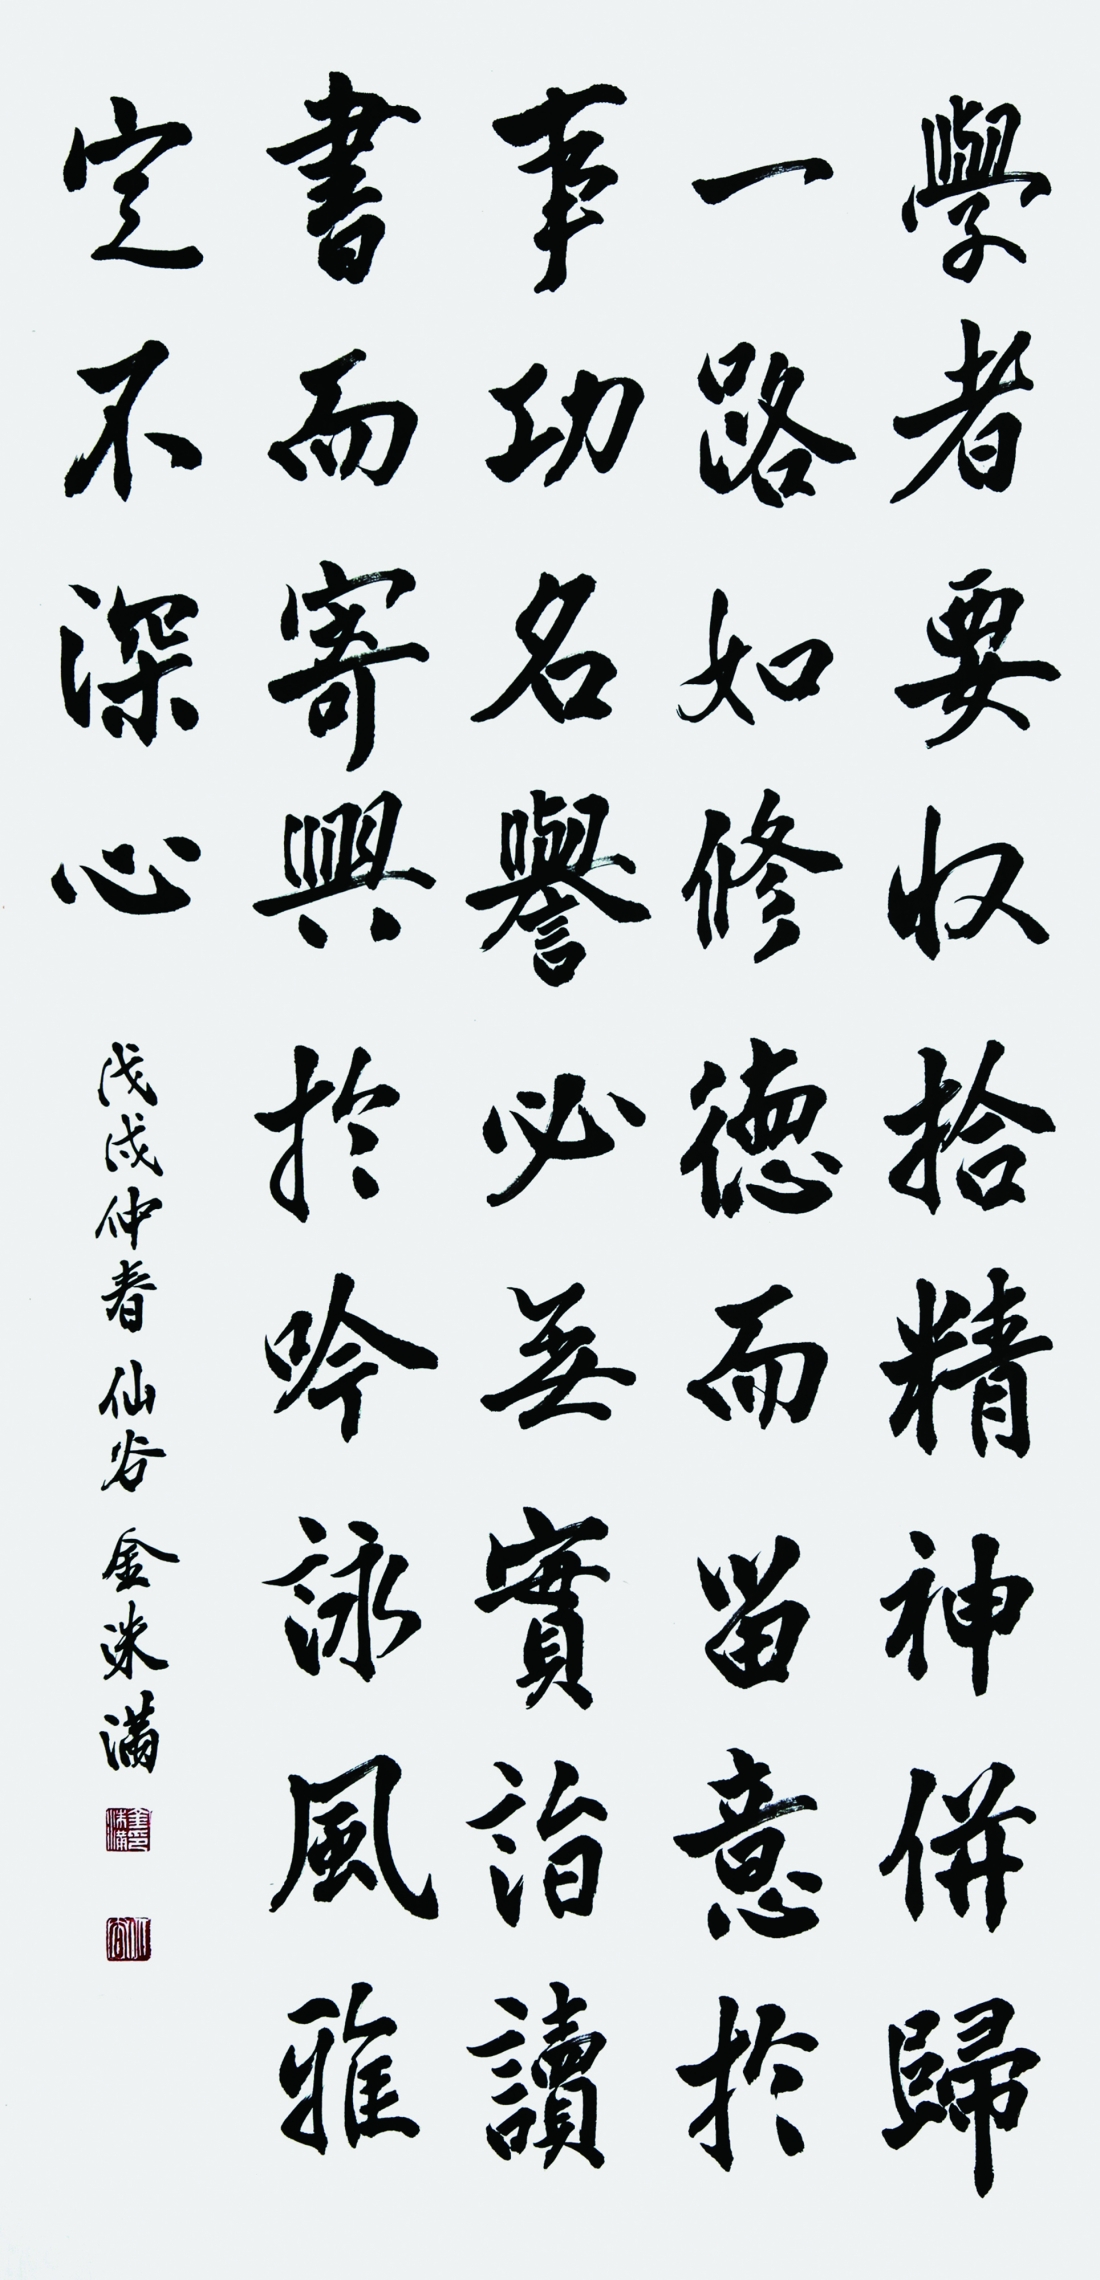 學者要収拾精神併歸
一路如修德而留意於
事功名譽必無實詣讀
書而寄興於吟詠風雅
定不深心
戊戌仲春 仙谷 金洙滿